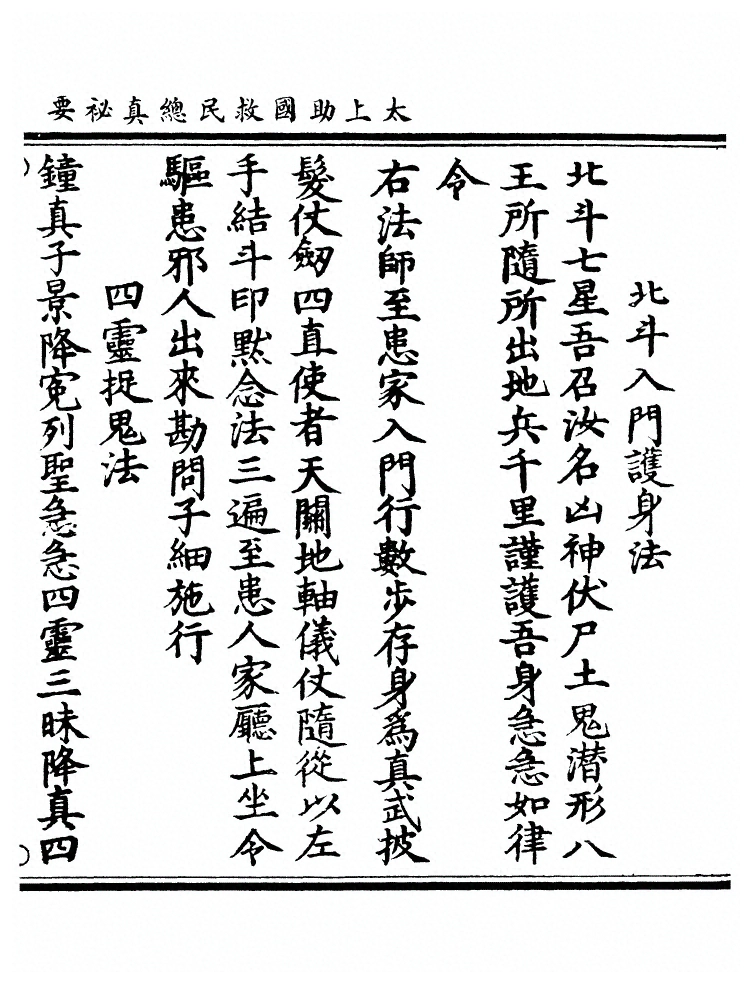 太上助國救民總真祕要
北斗入門護身法
北斗七星吾召汝名凶神伏尸土鬼潜形八
王所隨所出地兵千里謹護吾身急急如律
令
右法師至患家入門行數步存身為真武披
髮仗劒四直使者天關地軸儀仗隨從以左
手結斗印默念法三遍至患人家廳上坐令
驅患邪人出來勘問子細施行
四靈捉鬼法
鐘真子景降寃列聖急急四靈三昧降真四